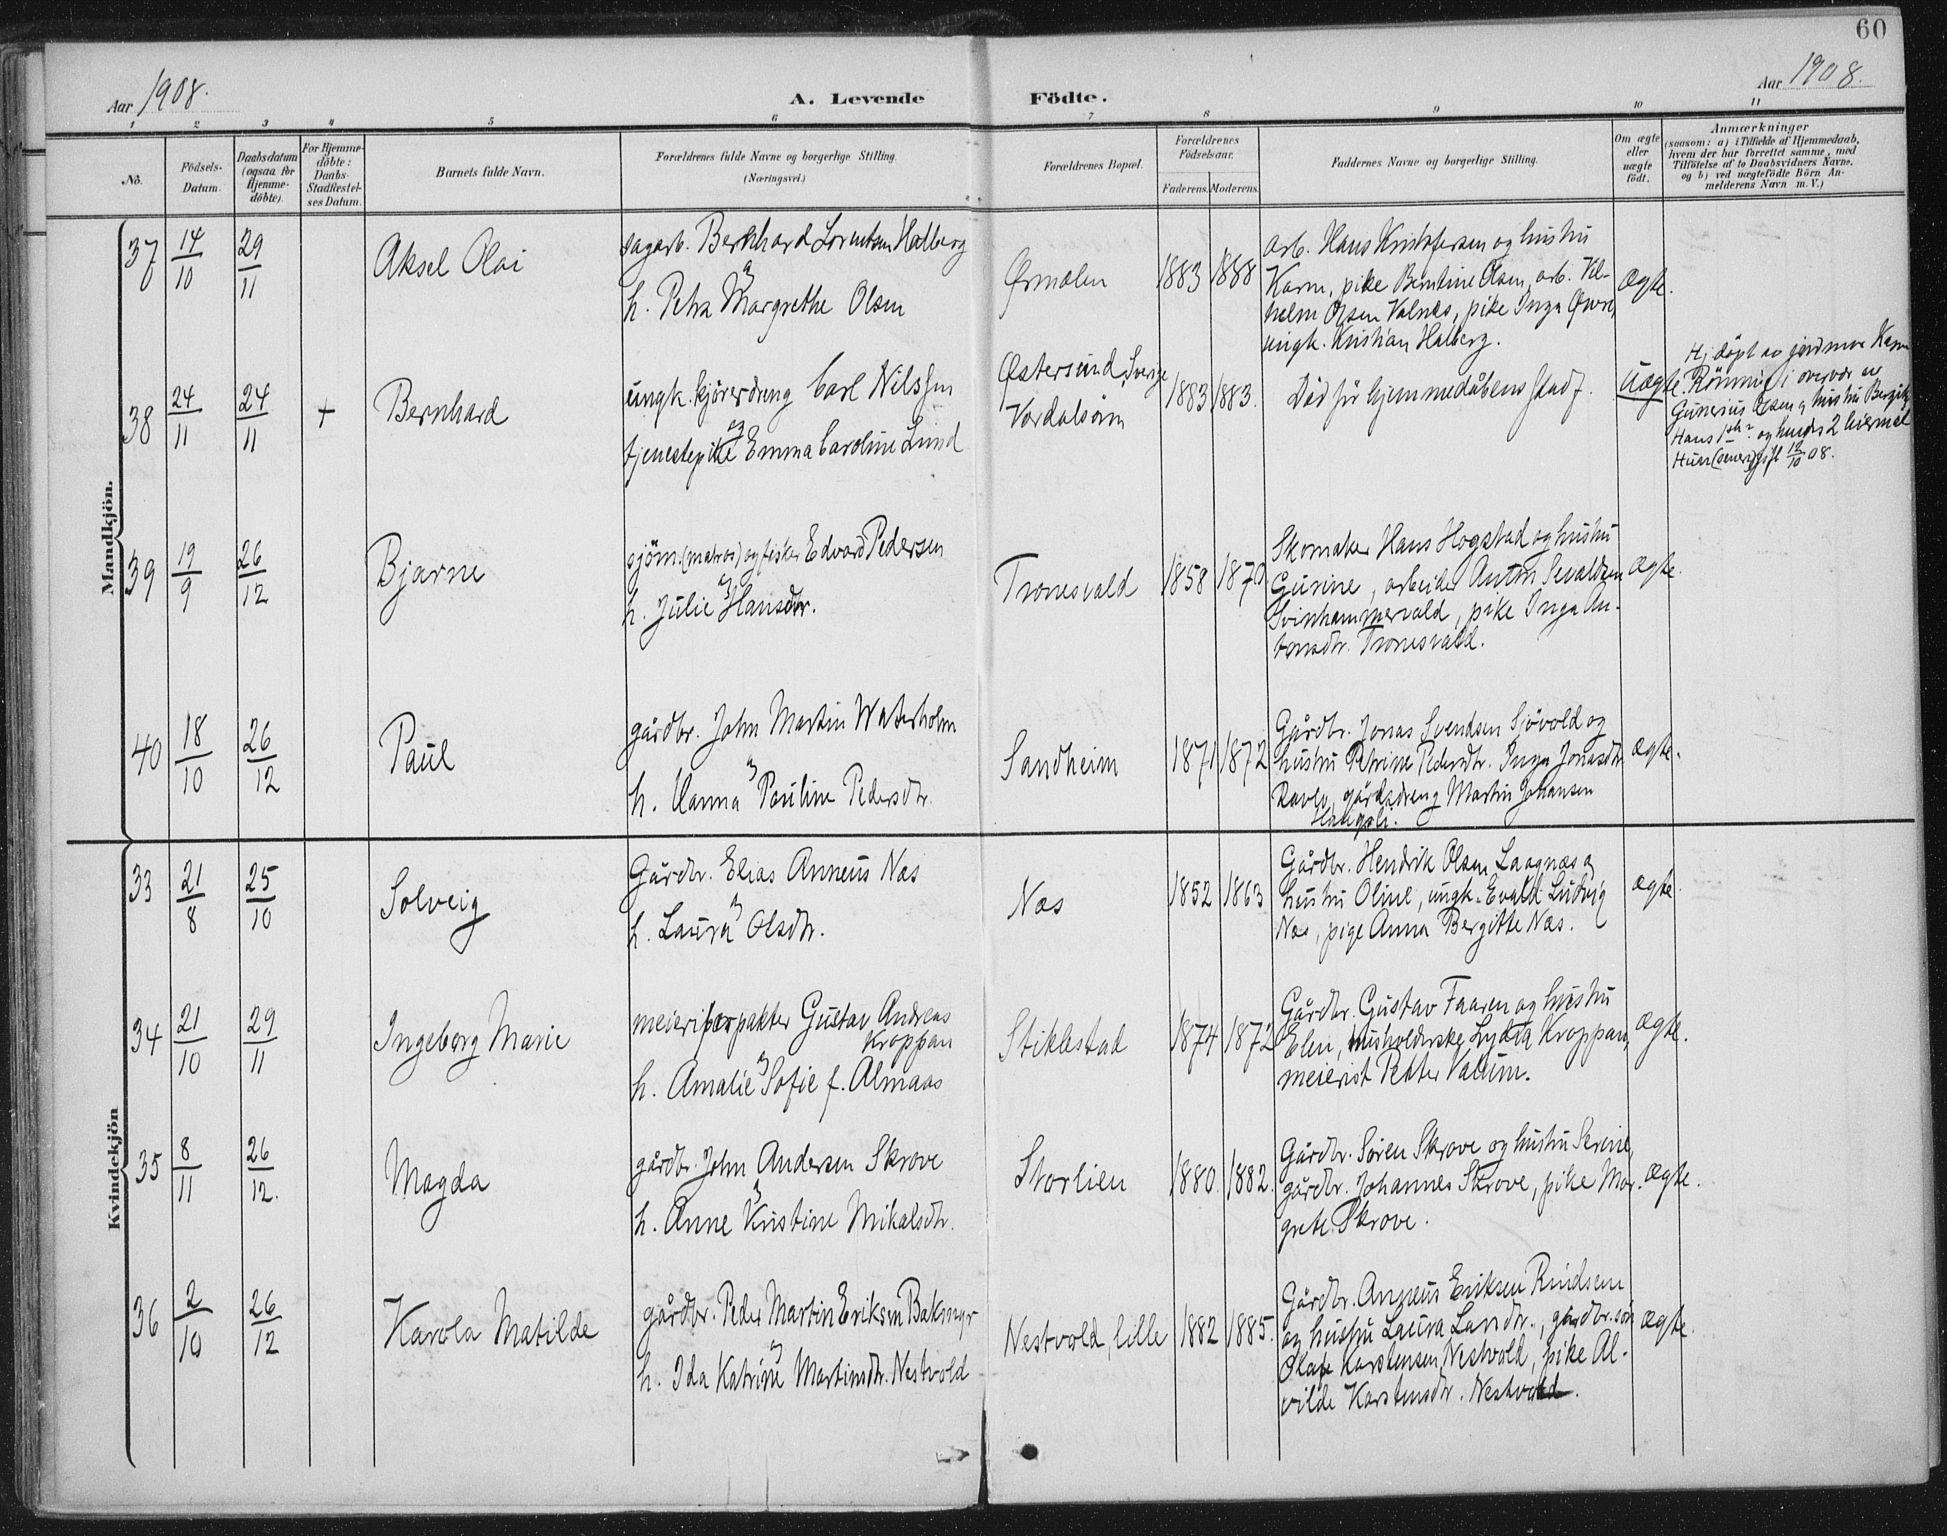 60
Aar 1908.
A. Levende Födte.
Aar 1908.
1 2 3 4 5 6 7 8 9 10 11
No.
Födsels-
Datum.
Daabsdatum
(ogsaa for
Hjemme-
döbte).
For Hjemme-
döbte:
Daabs-
Stadfæstel-
ses Datum.
Barnets fulde Navn.
Forældrenes fulde Navne og borgerlige Stilling.
(Næringsvei.)
Forældrenes Bopæl.
Forældrenes
Födselsaar.
Faderens. Moderens.
Faddernes Navne og borgerlige Stilling.
Om ægte
eller
uægte
födt.
Anmærkninger
(saasom: a) i Tilfælde af Hjemmedaab,
hvem der har forrettet samme, med
Tilföielse af to Daabsvidners Navne,
og b) ved uægtefödte Börn An-
melderens Navn m. V.)
Mandkjön.
37 14/10 29/11 Aksel Olai
sagarb. Bernhard Lorentsen Halberg
og
h. Petra Margrethe Olsen
Ørmelen 1883 1888
arb. Hans Kristofersen og hustru
Karen, pike Berntine Olsen, arb. Vil-
helm Olsen Valnes, pike Inga
ungk. Kristian Halberg.
Ægte.
38 24/11 24/11 + Bernhard
ungk. kjøredreng Carl Nilssen
og
tjenestepike Emma Caroline Lund
Østersund, Sverige
Verdalsøren
1883 1883.
Död för hjemmedåbens stadf.
Uægte.
Hj. døpt av jordmor
Rönning i overvær av
Gunerius Olsen og hustru
Hans 1ste og hendes 2
12/10 08.
39 19/9 26/12 Bjarne
sjöm. (matros) og fisker Edvard Pedersen
og
h. Julie Hansdtr.
Tronesvald 1858 1870
Skomaker Hans Hogstad og hustru
Gurine, arbeider Anton Sevaldsen
Svinhammervald, pike Inga An-
tonsdtr. Tronesvald.
Ægte.
40 18/10 26/12 Paul
gårdbr. John Martin Waterholm
og
h. Hanna Pauline Pedersdtr.
Sandheim 1871 1872
Gårdbr. Jonas Svendsen Sjövold og
hustru Petrine Pedersdtr. Inga Jonasdtr.
gårdsdreng Martin Johansen
Ægte.
Kvindekjön
33 21/8 25/10 Solveig
Gårdbr. Elias Anneus Næs
og
h. Laura Olsdtr.
Næs 1852 1863
Gårdbr. Hendrik Olsen Laagnæs og
hustru Oline, ungk. Evald Ludvig
Næs, pige Anna Bergitte Næs.
Ægte.
34 21/10 29/11 Ingeborg Marie
meieriforpakter Gustav Andreas
Kroppan
og
h. Amalie Sofie f. Almaas
Stiklestad 1874 1872
Gårdbr. Gustav Faaren og hustru
Elen, husholderske Lydia Kroppan,
meierist Petter Valum.
Ægte.
35 8/11 26/12. Magda
gårdbr. John Andersen Skrove
og
h. Anne Kristine Mikalsdtr.
Storlien 1880. 1882.
Gårdbr. Søren Skrove og hustru Serine,
gårdbr. Johannes Skrove, pike Mar-
grete Skrove.
Ægte.
36 2/10 26/12 Karola Matilde
gårdbr. Peder Martin Eriksen Bakmyr
og
h. Ida Katrine Martinsdtr. Nestvold
Nestvold, lille 1882 1885.
Gårdbr. Anneus Eriksen Rindsem
og hustru Laura Larsdtr., gårdbr. søn
Olaf Karstensen Nestvold, pike Al-
vilde Karstensdtr. Nestvold.
Ægte.